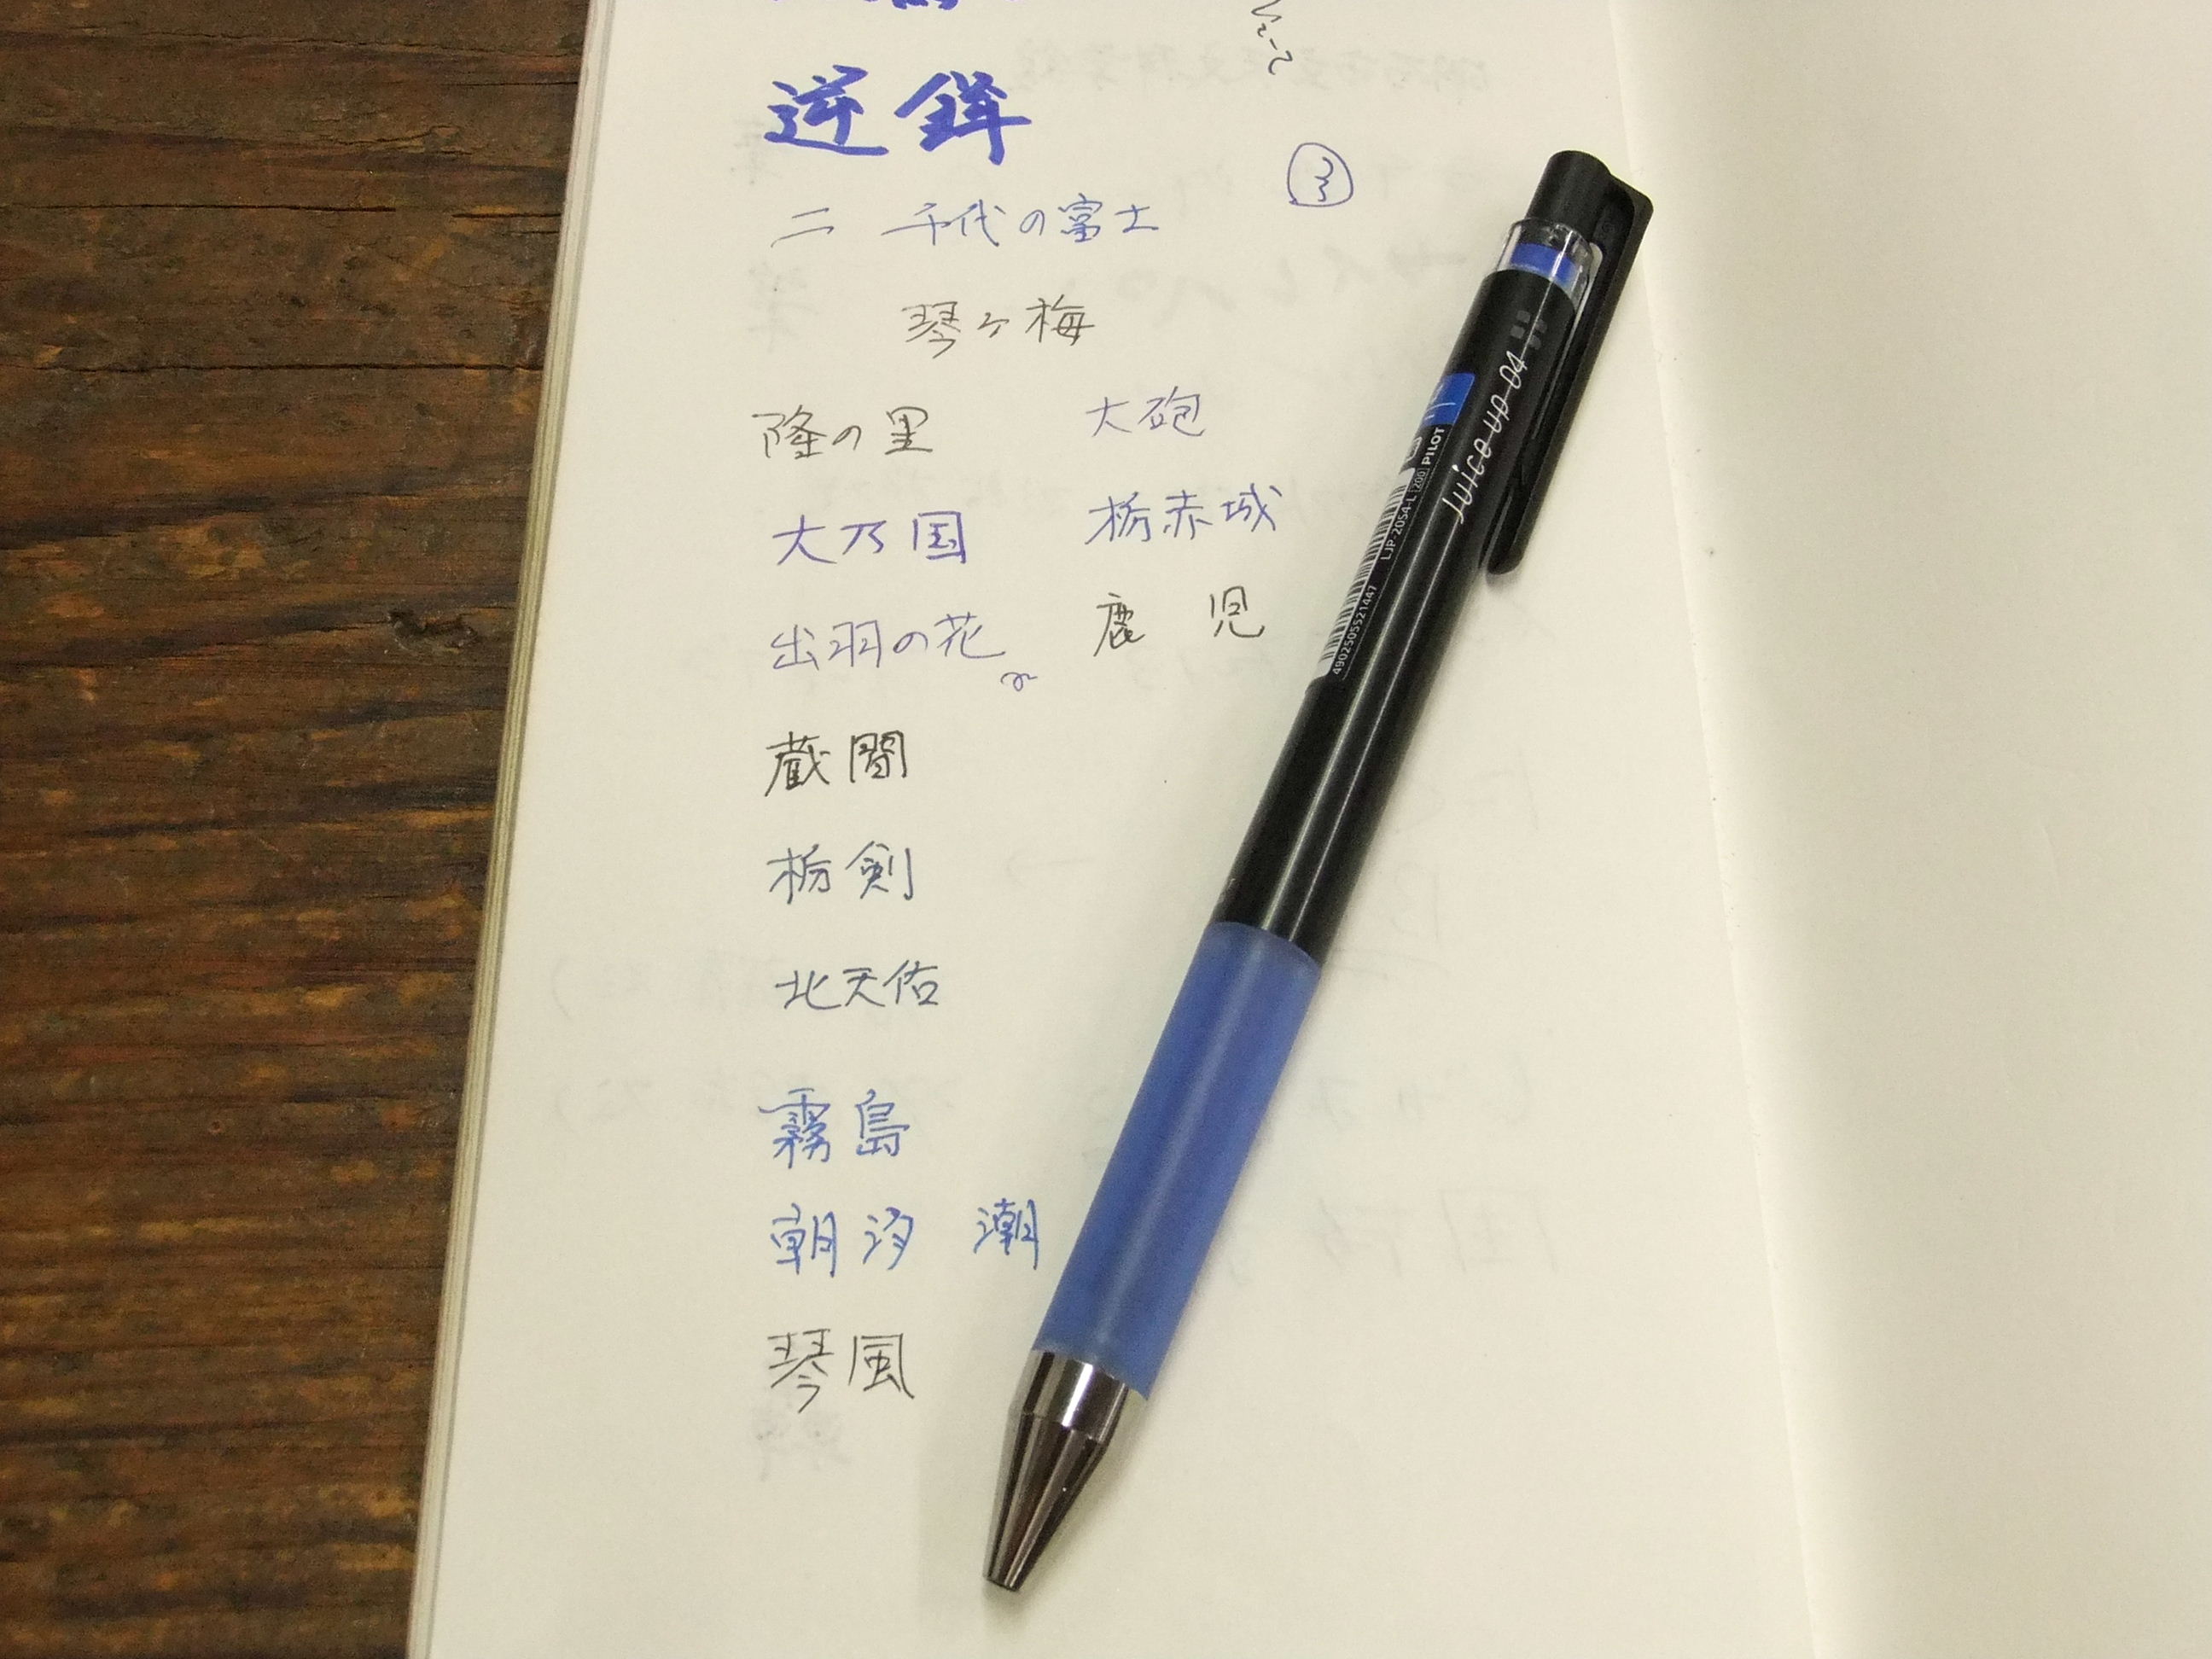 逆鉾
③
二 千代の富士
琴ヶ梅
隆の里 大砲
大乃国 栃赤城
出羽の花 鹿 児
蔵間
栃剣
北天佑
霧島
朝汐 潮
琴風
Juice up 04
PILOT
LJP-20S4-L 200
4902505521447